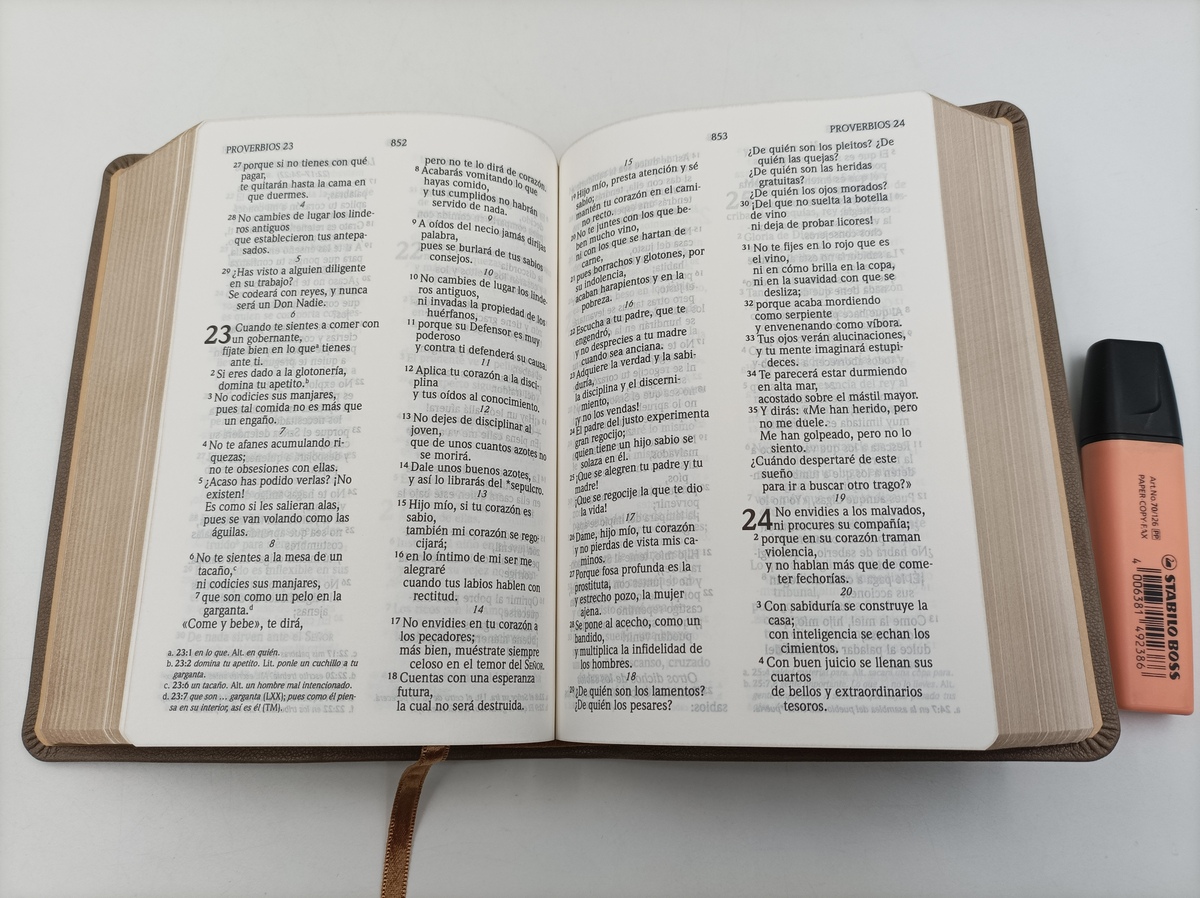 PROVERBIOS 23
852
27 porque si no tienes con qué
pagar,
te quitarán hasta la cama en
que duermes.
4
28 No cambies de lugar los linde-
ros antiguos
que establecieron tus antepa-
sados.
5
29 ¿Has visto a alguien diligente
en su trabajo?
Se codeará con reyes, y nunca
será un Don Nadie.
6
23 Cuando te sientes a comer con
un gobernante,
fíjate bien en lo queª tienes
ante ti.
2 Si eres dado a la glotonería,
domina tu apetito.b
3 No codicies sus manjares,
pues tal comida no es más que
un engaño.
7
4 No te afanes acumulando ri-
quezas;
no te obsesiones con ellas.
5 ¿Acaso has podido verlas? ¡No
existen!
Es como si les salieran alas,
pues se van volando como las
águilas.
8
6 No te sientes a la mesa de un
tacaño,c
ni codicies sus manjares,
7 que son como un pelo en la
garganta.d
«Come y bebe», te dirá,
a. 23:1 en lo que. Alt. en quién.
b. 23:2 domina tu apetito. Lit. ponle un cuchillo a tu
garganta.
c. 23:6 un tacaño. Alt. un hombre mal intencionado.
d. 23:7 que son ... garganta (LXX); pues como él pien-
sa en su interior, así es él (TM).
pero no te lo dirá de corazón.
8 Acabarás vomitando lo que
hayas comido,
y tus cumplidos no habrán
servido de nada.
9
9 A oídos del necio jamás dirijas
palabra,
pues se burlará de tus sabios
consejos.
10
10 No cambies de lugar los linde-
ros antiguos,
ni invadas la propiedad de los
huérfanos,
11 porque su Defensor es muy
poderoso
y contra ti defenderá su causa.
11
12 Aplica tu corazón a la disci-
plina
y tus oídos al conocimiento.
12
13 No dejes de disciplinar al
joven,
que de unos cuantos azotes no
se morirá.
14 Dale unos buenos azotes,
y así lo librarás del *sepulcro.
13
15 Hijo mío, si tu corazón es
sabio,
también mi corazón se rego-
cijará;
16 en lo íntimo de mi ser me
alegraré
cuando tus labios hablen con
rectitud.
14
17 No envidies en tu corazón a
los pecadores;
más bien, muéstrate siempre
celoso en el temor del SEÑOR.
18 Cuentas con una esperanza
futura,
la cual no será destruida.
853
PROVERBIOS 24
15
19 Hijo mío, presta atención y sé
sabio;
mantén tu corazón en el cami-
no recto.
20 No te juntes con los que be-
ben mucho vino,
ni con los que se hartan de
carne,
21 pues borrachos y glotones, por
su indolencia,
acaban harapientos y en la
pobreza.
16
22 Escucha a tu padre, que te
engendró,
y no desprecies a tu madre
cuando sea anciana.
23 Adquiere la verdad y la sabi-
duría,
la disciplina y el discerni-
miento,
¡y no los vendas!
24 El padre del justo experimenta
gran regocijo;
quien tiene un hijo sabio se
solaza en él.
25 ¡Que se alegren tu padre y tu
madre!
¡Que se regocije la que te dio
la vida!
17
26 Dame, hijo mío, tu corazón
y no pierdas de vista mis ca-
minos.
27 Porque fosa profunda es la
prostituta,
y estrecho pozo, la mujer
ajena.
28 Se pone al acecho, como un
bandido,
y multiplica la infidelidad de
los hombres.
18
29 ¿De quién son los lamentos?
¿De quién los pesares?
¿De quién son los pleitos? ¿De
quién las quejas?
¿De quién son las heridas
gratuitas?
¿De quién los ojos morados?
30 ¡Del que no suelta la botella
de vino
ni deja de probar licores!
31 No te fijes en lo rojo que es
el vino,
ni en cómo brilla en la copa,
ni en la suavidad con que se
desliza;
32 porque acaba mordiendo
como serpiente
y envenenando como víbora.
33 Tus ojos verán alucinaciones,
y tu mente imaginará estupi-
deces.
34 Te parecerá estar durmiendo
en alta mar,
acostado sobre el mástil mayor.
35 Y dirás: «Me han herido, pero
no me duele.
Me han golpeado, pero no lo
siento.
¿Cuándo despertaré de este
sueño
para ir a buscar otro trago?»
19
24 No envidies a los malvados,
ni procures su compañía;
2 porque en su corazón traman
violencia,
y no hablan más que de come-
ter fechorías.
20
3 Con sabiduría se construye la
casa;
con inteligencia se echan los
cimientos.
4 Con buen juicio se llenan sus
cuartos
de bellos y extraordinarios
tesoros.
Art.No.70/126
PAPER·COPY·FAX
4 006381 492386
STABILO BOSS